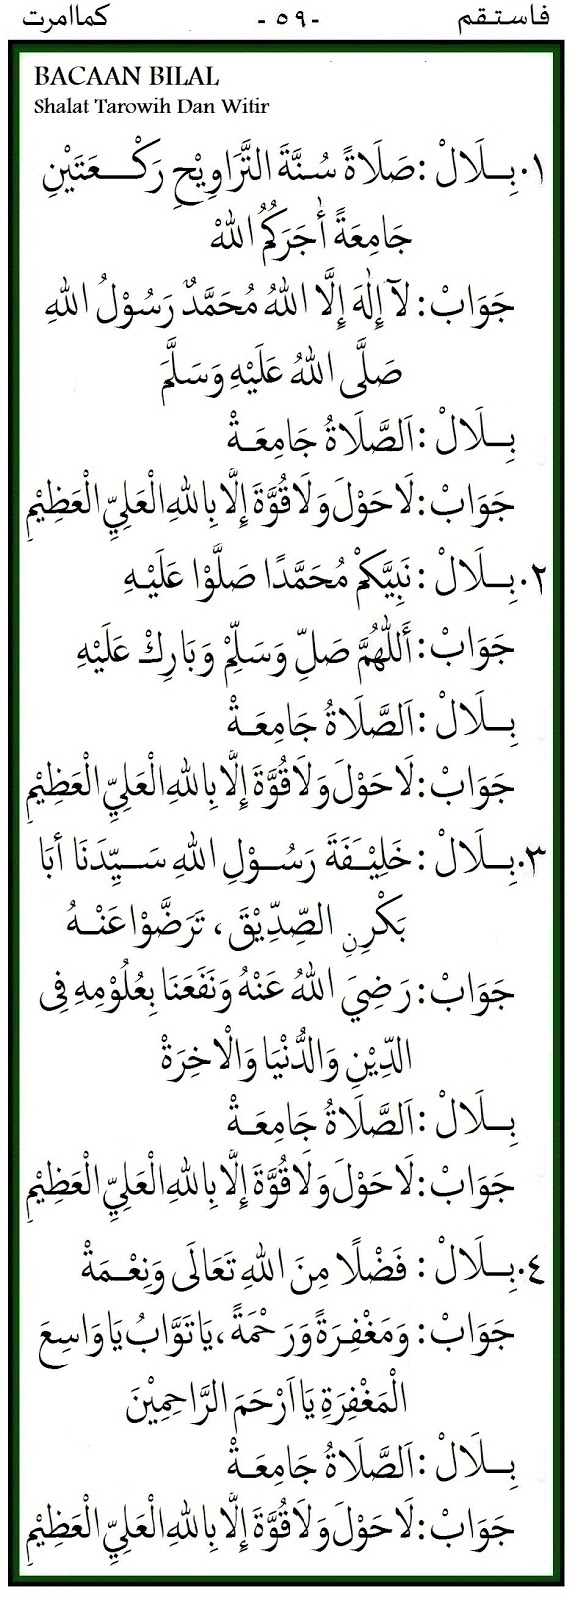 فاستقم -٥٩- كماامرت
BACAAN BILAL
Shalat Tarowih Dan Witir
١. بِلَالْ : صَلَاةً سُنَّةَ التَّرَاوِيْحِ رَكْعَتَيْنِ
جَامِعَةً أَجَرَكُمُ اللهْ
جَوَابْ : لَآ إِلٰهَ إِلَّا اللهُ مُحَمَّدٌ رَسُوْلُ اللهِ
صَلَّى اللهُ عَلَيْهِ وَسَلَّمَ
بِلَالْ : اَلصَّلَاةُ جَامِعَةْ
جَوَابْ : لَاحَوْلَ وَلَاقُوَّةَ إِلَّا بِاللهِ الْعَلِيِّ الْعَظِيْمِ
٢. بِلَالْ : نَبِيَّكُمْ مُحَمَّدًا صَلُّوْا عَلَيْهِ
جَوَابْ : أَللّٰهُمَّ صَلِّ وَسَلِّمْ وَبَارِكْ عَلَيْهِ
بِلَالْ : اَلصَّلَاةُ جَامِعَةْ
جَوَابْ : لَاحَوْلَ وَلَاقُوَّةَ إِلَّا بِاللهِ الْعَلِيِّ الْعَظِيْمِ
٣. بِلَالْ : خَلِيْفَةَ رَسُوْلِ اللهِ سَيِّدَنَا أَبَا
بَكْرِنِ الصِّدِّيْقَ، تَرَضَّوْا عَنْهُ
جَوَابْ : رَضِيَ اللهُ عَنْهُ وَنَفَعَنَا بِعُلُوْمِهِ فِى
الدِّيْنِ وَالدُّنْيَا وَالْاخِرَةْ
بِلَالْ : اَلصَّلَاةُ جَامِعَةْ
جَوَابْ : لَاحَوْلَ وَلَاقُوَّةَ إِلَّا بِاللهِ الْعَلِيِّ الْعَظِيْمِ
٤. بِلَالْ : فَضْلًا مِنَ اللهِ تَعَالَى وَنِعْمَةْ
جَوَابْ : وَمَغْفِرَةً وَرَحْمَةً، يَاتَوَّابُ يَاوَاسِعَ
الْمَغْفِرَةِ يَااَرْحَمَ الرَّاحِمِيْنَ
بِلَالْ : اَلصَّلَاةُ جَامِعَةْ
جَوَابْ : لَاحَوْلَ وَلَاقُوَّةَ إِلَّا بِاللهِ الْعَلِيِّ الْعَظِيْمِ